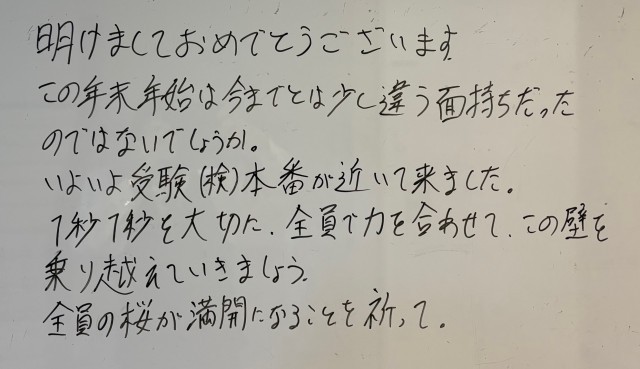 明けましておめでとうございます
この年末年始は今までとは少し違う面持ちだった
のではないでしょうか。
いよいよ受験(検)本番が近いて来ました。
1秒1秒を大切に、全員で力を合わせて、この壁を
乗り越えていきましょう。
全員の桜が満開になることを祈って。